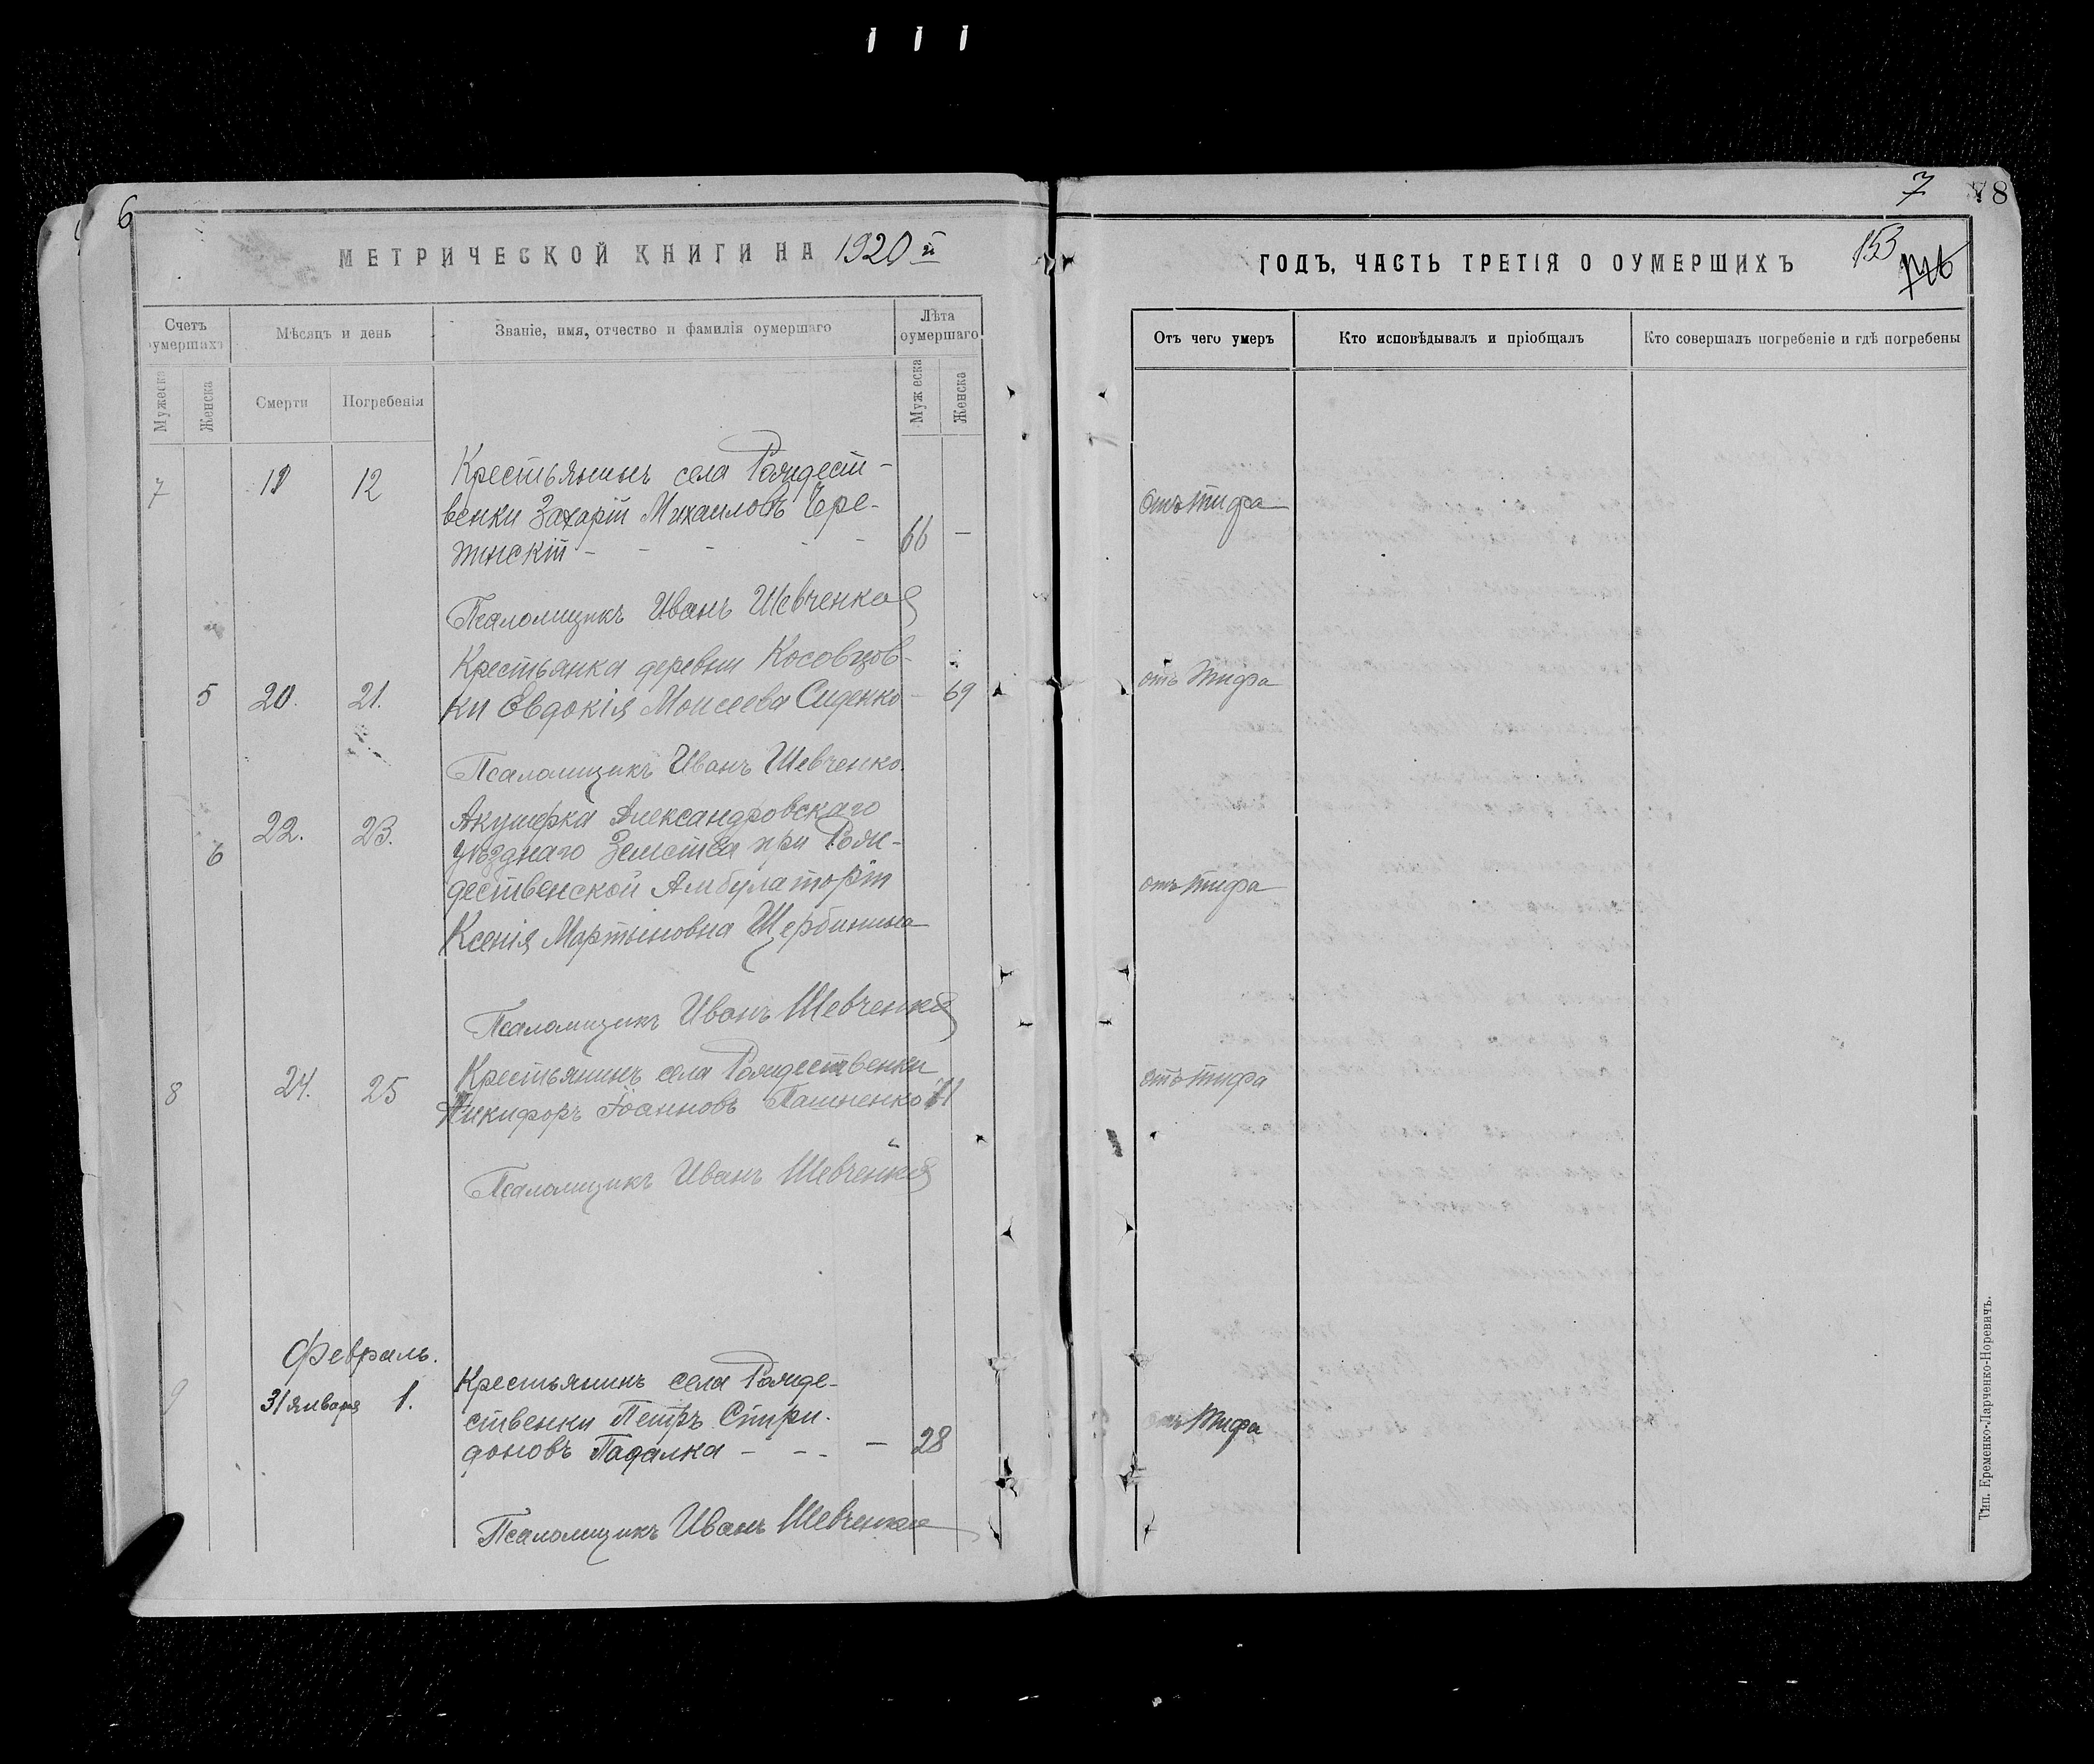 6
МЕТРИЧЕСКОЙ КНИГИ НА 1920 й
Счетъ умершихъ
Мѣсяцъ и день
Званіе, имя, отчество и фамилія оумершаго
Лѣта оумершаго
Мужеска
Женска
Смерти
Погребенія
Мужеска
Женска
7 12
Крестьянинъ села Рождест-
венки Захарій Михаиловъ Чре-
тинскій - - - - - 66 -
Псаломщикъ Иванъ Шевченко
Крестьянка деревни Косовцов-
5 20. 21. ки Евдокія Моисеева Сиденко - 69
Псаломщикъ Иванъ Шевченко.
6 22. 23. Акушерка Александровскаго
уѣзднаго Земства при Рож-
дественской Амбулаторіи
Ксенія Мартыновна Щербинина
Псаломщикъ Иванъ Шевченко
8 24. 25 Крестьянинъ села Рождественки
Никифоръ Іоанновъ Пашненко
Псаломщикъ Иванъ Шевченко
Февраль.
9 31 января 1. Крестьянинъ села Рожде-
ственки Петръ Спири-
доновъ Падалка - - - - 28
Псаломщикъ Иванъ Шевченко
7 78
ГОДЪ, ЧАСТЬ ТРЕТІЯ О ОУМЕРШИХЪ 153
Отъ чего умеръ
Кто исповѣдывалъ и пріобщалъ
Кто совершалъ погребеніе и гдѣ погребены
Отъ тифа
отъ тифа
отъ тифа
отъ тифа
отъ тифа
Тип. Еременко-Ларченко-Норевичъ.